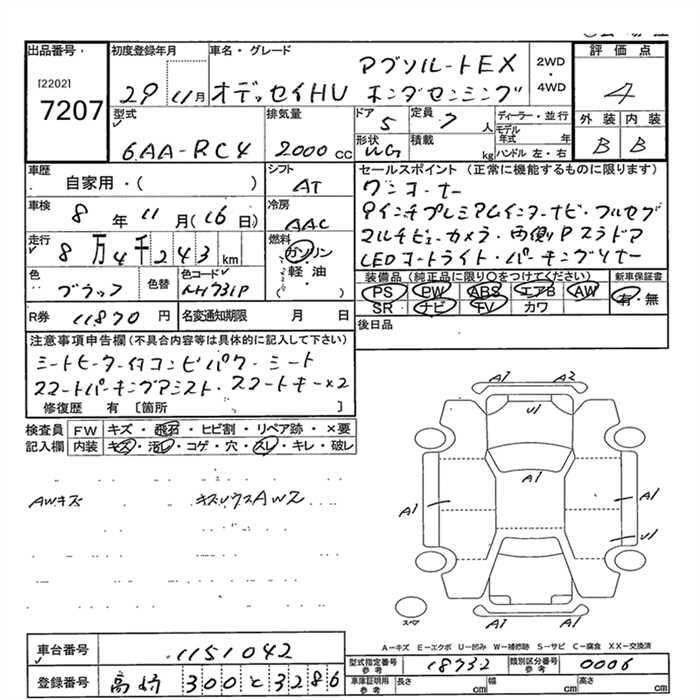 出品番号 初度登録年月 車名・グレード
[2202] 7207
29年11月 オデッセイHV アブソルートEX ホンダセンシング
2WD・4WD
評価点 4
外装 内装
B B
型式 排気量 ドア 定員 ディーラー・並行
6AA-RC4 2000cc 5 7人
モデル年式 年
形状 WG 積載 kg ハンドル 左・右
車歴 自家用・( )
シフト AT
車検 8年11月(16日)
冷房 AAC
走行 8万4千243km
燃料 ガソリン 軽・油 ( )
色 ブラック 色替 色コード NH731P
R券 11870円 名変通知期限 月 日
セールスポイント (正常に機能するものに限ります)
ワンオーナー
9インチプレミアムインターナビ・フルセグ
マルチビューカメラ・両側Pスラドア
LEDヘッドライト・パーキングソナー
装備品(純正品に限り○をつけてください) 新車保証書
PS PW ABS エアB AW 有・無
SR ナビ TV カワ
後日品
注意事項申告欄(不具合内容等は具体的に記入して下さい)
シートヒーター付コンビパワーシート
スマートパーキングアシスト・スマートキー×2
修復歴 有 [箇所 ]
検査員記入欄 FW キズ・飛石・ヒビ割・リペア跡・×要
内装 キズ・汚レ・コゲ・穴・スレ・キレ・破レ
AWキズ キズソウスAW2
A1 A2
U1
A1
A1 A1
U1
A1 A1
スペア
A−キズ E−エクボ U−凹み W−補修跡 S−サビ C−腐食 XX−交換済
車台番号 1151042
型式指定番号 参考 18732 類別区分番号 参考 0006
登録番号 高崎 300 と 3286
車庫証明用 参考 長さ cm 幅 cm 高さ cm